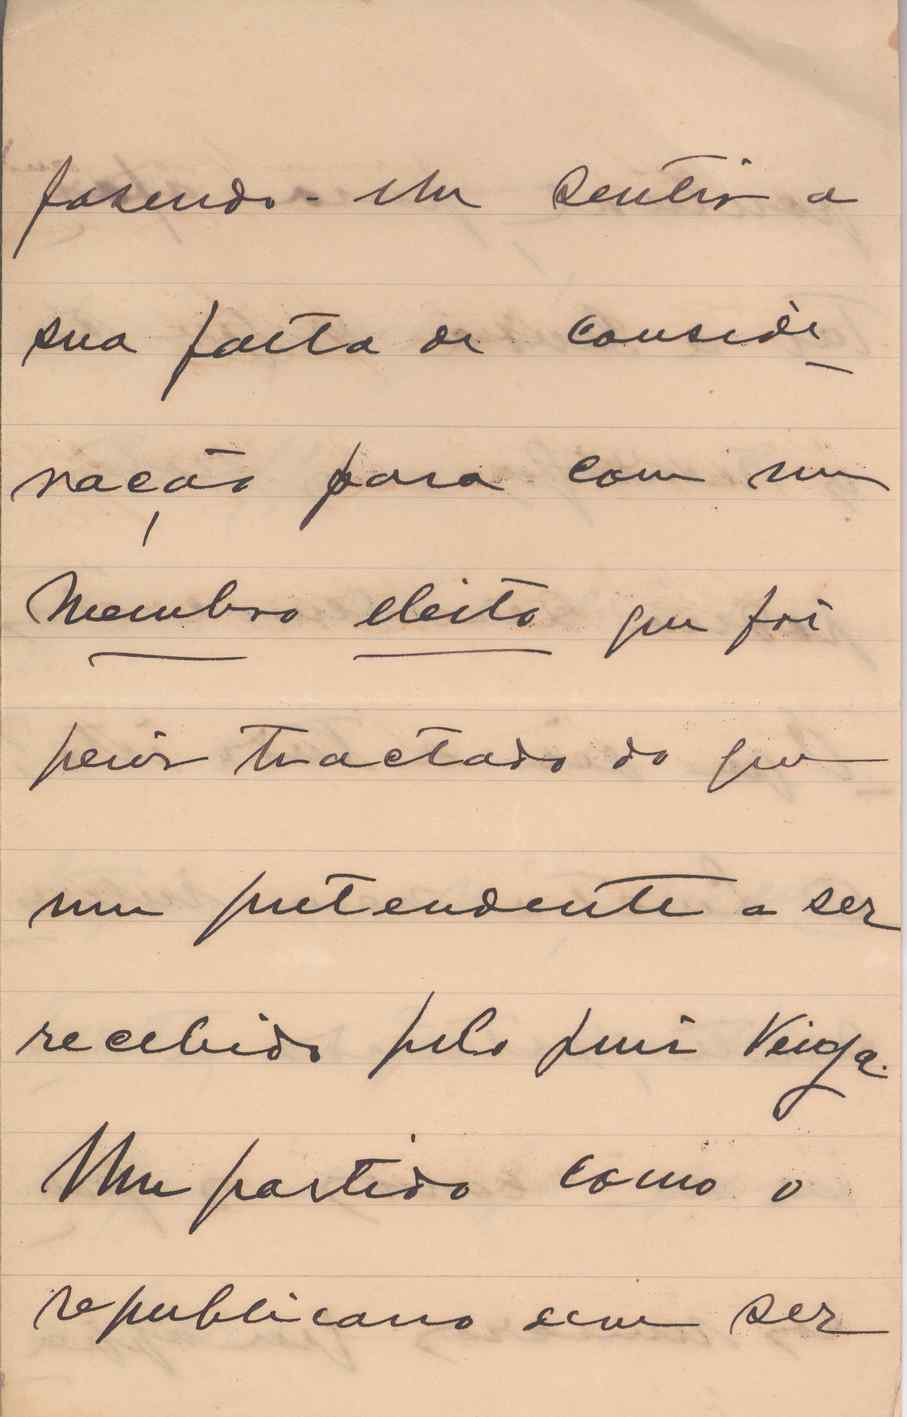 fasendo-lhe sentir a
sua falta de conside
ração para com um
Membro eleito que foi
peior tractado do que
um pretendente a ser
recebido pelo Juiz Veiga.
Um partido como o
republicano deve ser